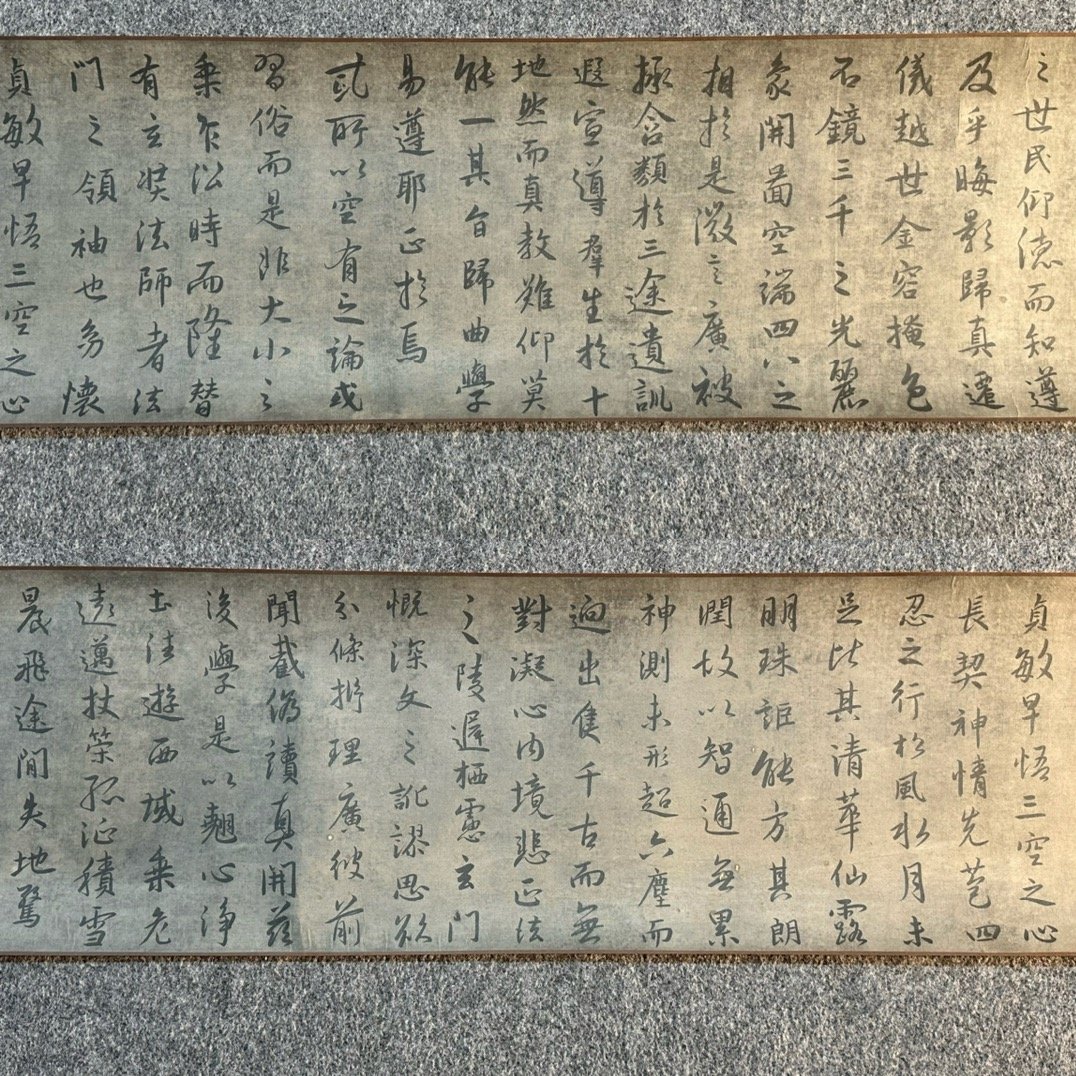 之世民仰德而知遵
及乎晦影歸真遷
儀越世金容掩色
不鏡三千之光麗
象開圖空端四八之
相於是微言廣被
拯含類於三途遺訓
遐宣導羣生於十
地然而真教難仰莫
能一其旨歸曲學
易遵耶正於焉
貳所以空有之論或
習俗而是非大小之
乘乍沿時而隆替
有玄奘法師者法
門之領袖也幼懷
貞敏早悟三空之心
貞敏早悟三空之心
長契神情先苞四
忍之行松風水月未
足比其清華仙露
明珠詎能方其朗
潤故以智通無累
神測未形超六塵而
迥出隻千古而無
對凝心內境悲正法
之陵遲栖慮玄門
慨深文之訛謬思欲
分條析理廣彼前
聞截偽續真開茲
後學是以翹心淨
土往遊西域乘危
遠邁杖策孤征積雪
晨飛途閒失地驚